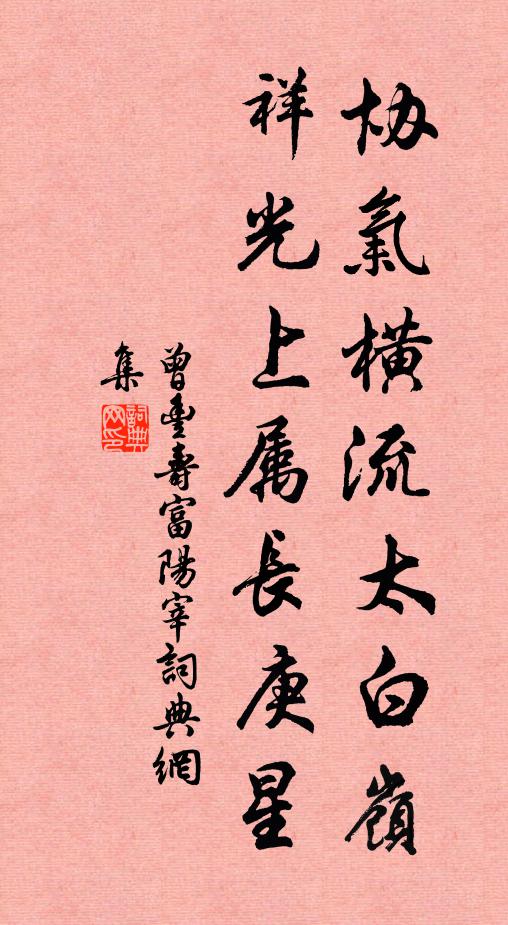 协氣橫流太白嶺
祥光上属長庚星
曾豐壽富陽宰詞典網
集
詞典网印